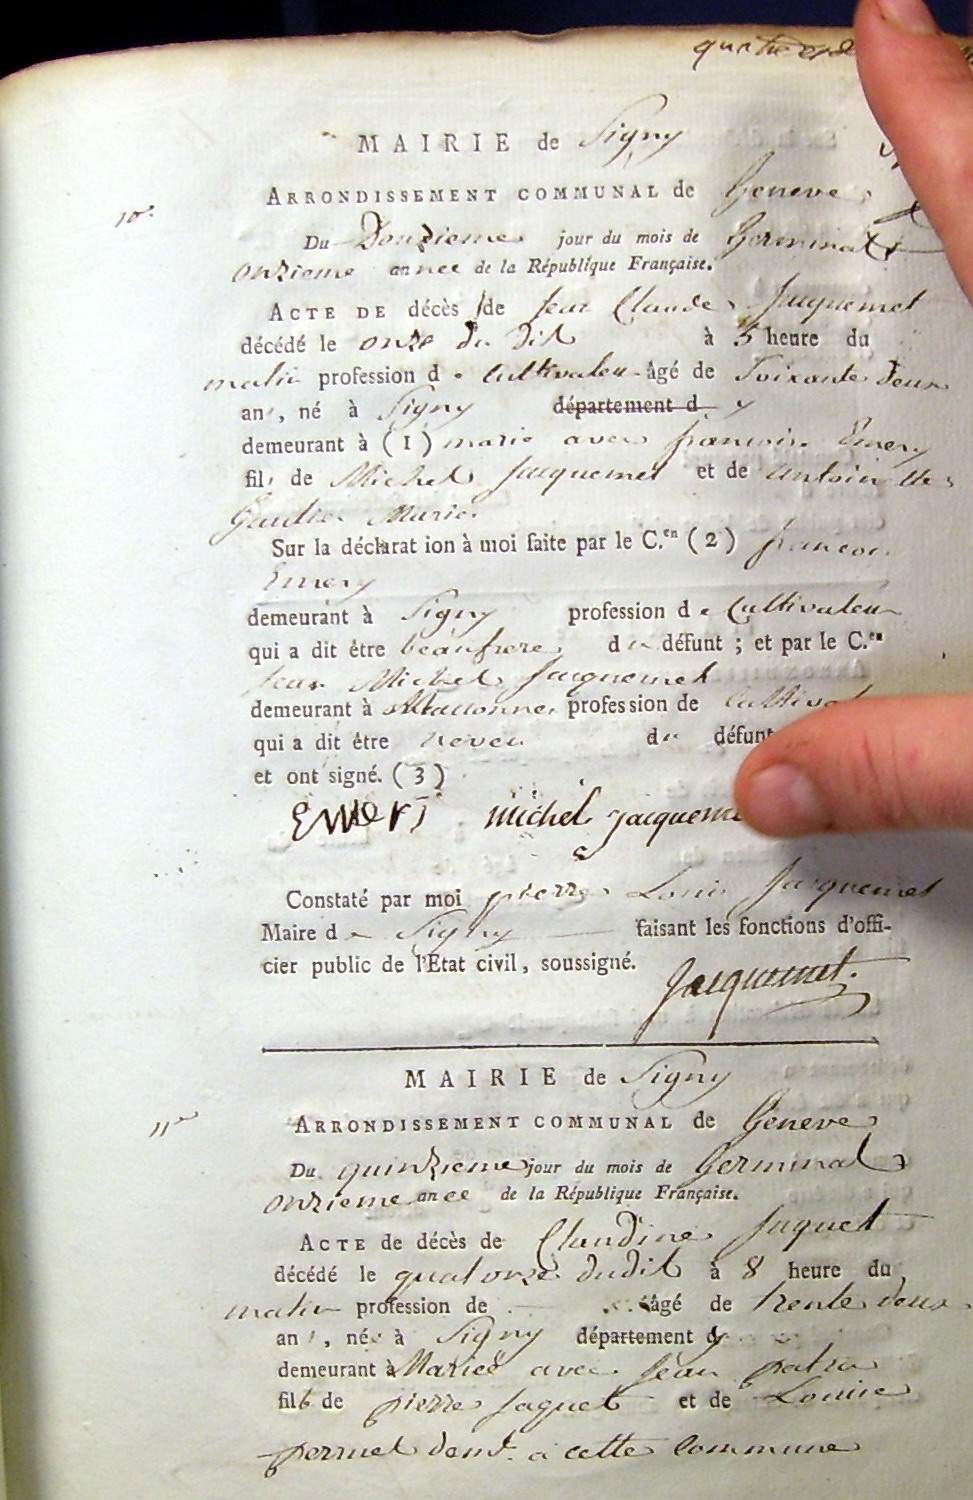 MAIRIE de Signy
10e.
ARRONDISSEMENT COMMUNAL de Geneve
Du Douzieme jour du mois de Germinal
onzieme année de la République Française.
ACTE DE décès de Jean Claude Jacquemet
décédé le onze du dit à 5 heure du
matin profession de Cultivateur âgé de Soixante Deux
ans, né à Signy département d y
demeurant à (1) marié avec françoise Emery
fils de Michel Jacquemet et de antoinette
Gautier Mariés
Sur la déclaration à moi faite par le C.en (2) françois
Emery
demeurant à Signy profession de Cultivateur
qui a dit être beaufrere du défunt ; et par le C.en
Jean Michel Jacquemet
demeurant à profession de
qui a dit être neveu du défunt
et ont signé. (3)
Emery michel jacqueme
Constaté par moi pierre Louis Jacquemet
Maire de Signy faisant les fonctions d'offi-
cier public de l'Etat civil, soussigné.
Jacquemet.
MAIRIE de Signy
11e
ARRONDISSEMENT COMMUNAL de Geneve
Du quinzieme jour du mois de Germinal
onzieme année de la République Française.
ACTE de décès de Claudine Jaquet
décédé le quatorze dudit à 8 heure du
matin profession de âgé de trente deux
ans, née à Signy département d y
demeurant à Mariée avec Jean
fille de pierre Jaquet et de Louise
perruet demt. a cette commune